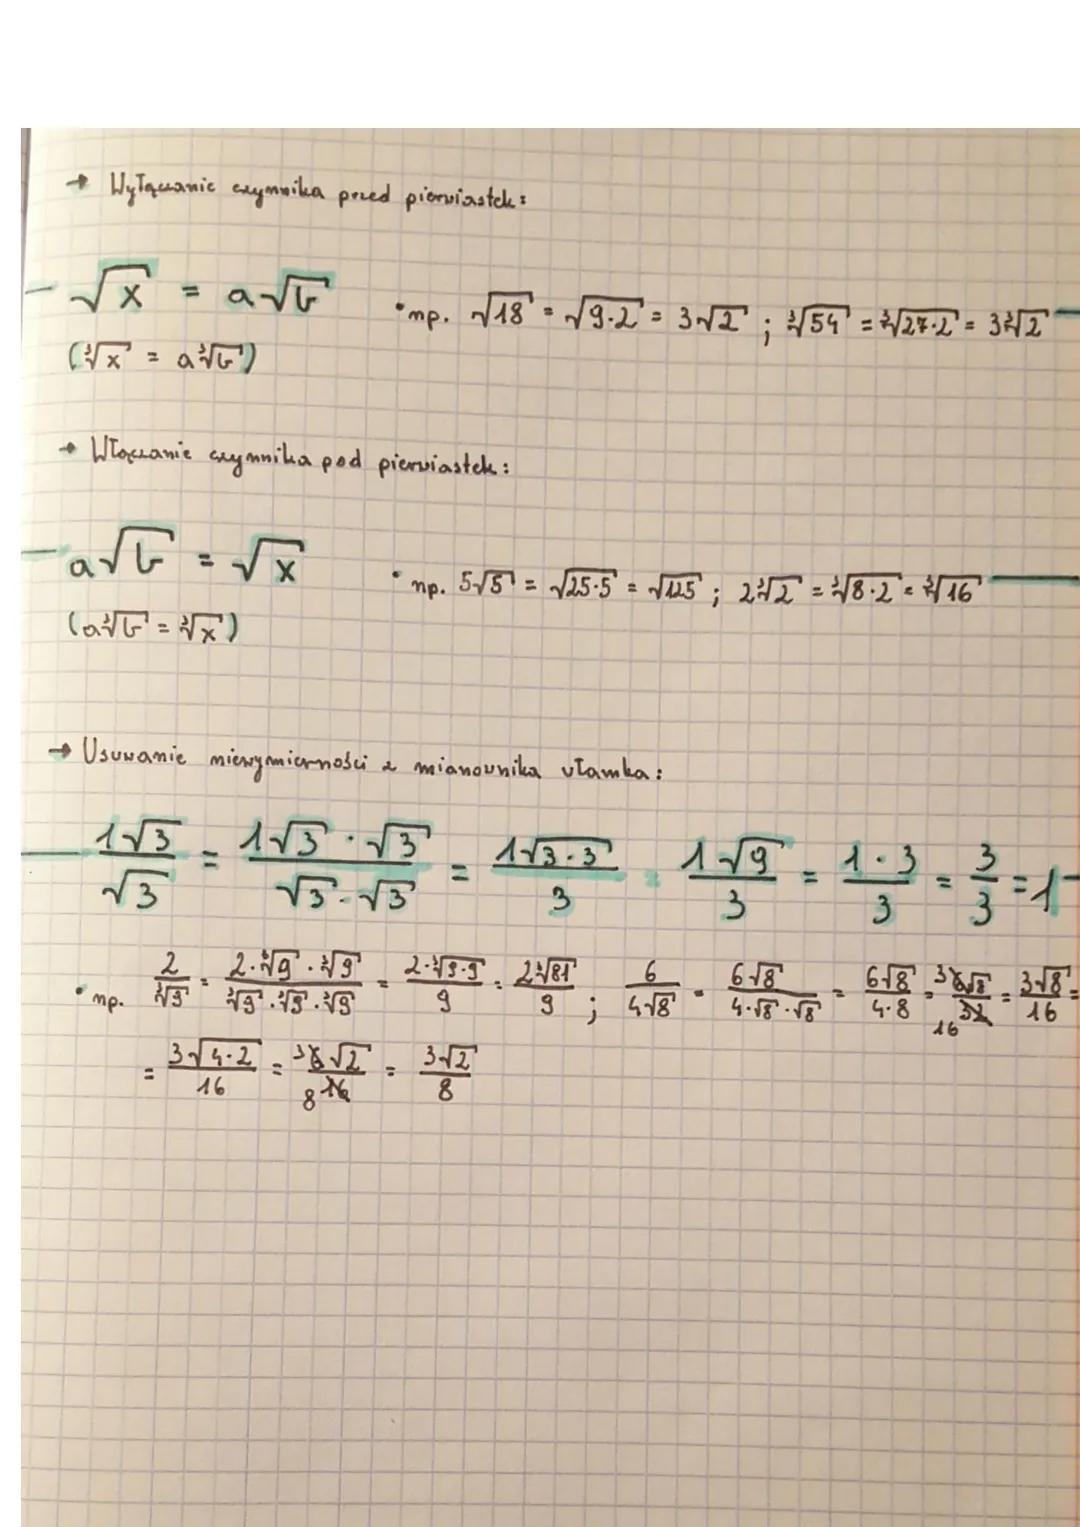 → Wyłączanie czynnika przed pierwiastek:
- √x = a√b • np. √18 = √9·2 = 3√2 ; ∛54 = ∛27·2 = 3∛2
(∛x = a∛b)
→ Włączanie czynnika pod pierwiastek:
- a√b = √x • np. 5√5 = √25·5 = √125 ; 2∛2 = ∛8·2 = ∛16
(a∛b = ∛x)
→ Usuwanie niewymierności z mianownika ułamka:
1√3/√3 = 1√3·√3/√3·√3 = 1√3·3/3 = 1√9/3 = 1·3/3 = 3/3 = 1
• np. 2/∛9 = 2·∛9·∛9/∛9·∛9·∛9 = 2·∛9·9/9 = 2∛81/9 ; 6/4√8 = 6√8/4·√8·√8 = 6√8/4·8 = 3 6√8/32 16 = 3√8/16 =
= 3√4·2/16 = 3 6√2/16 8 = 3√2/8